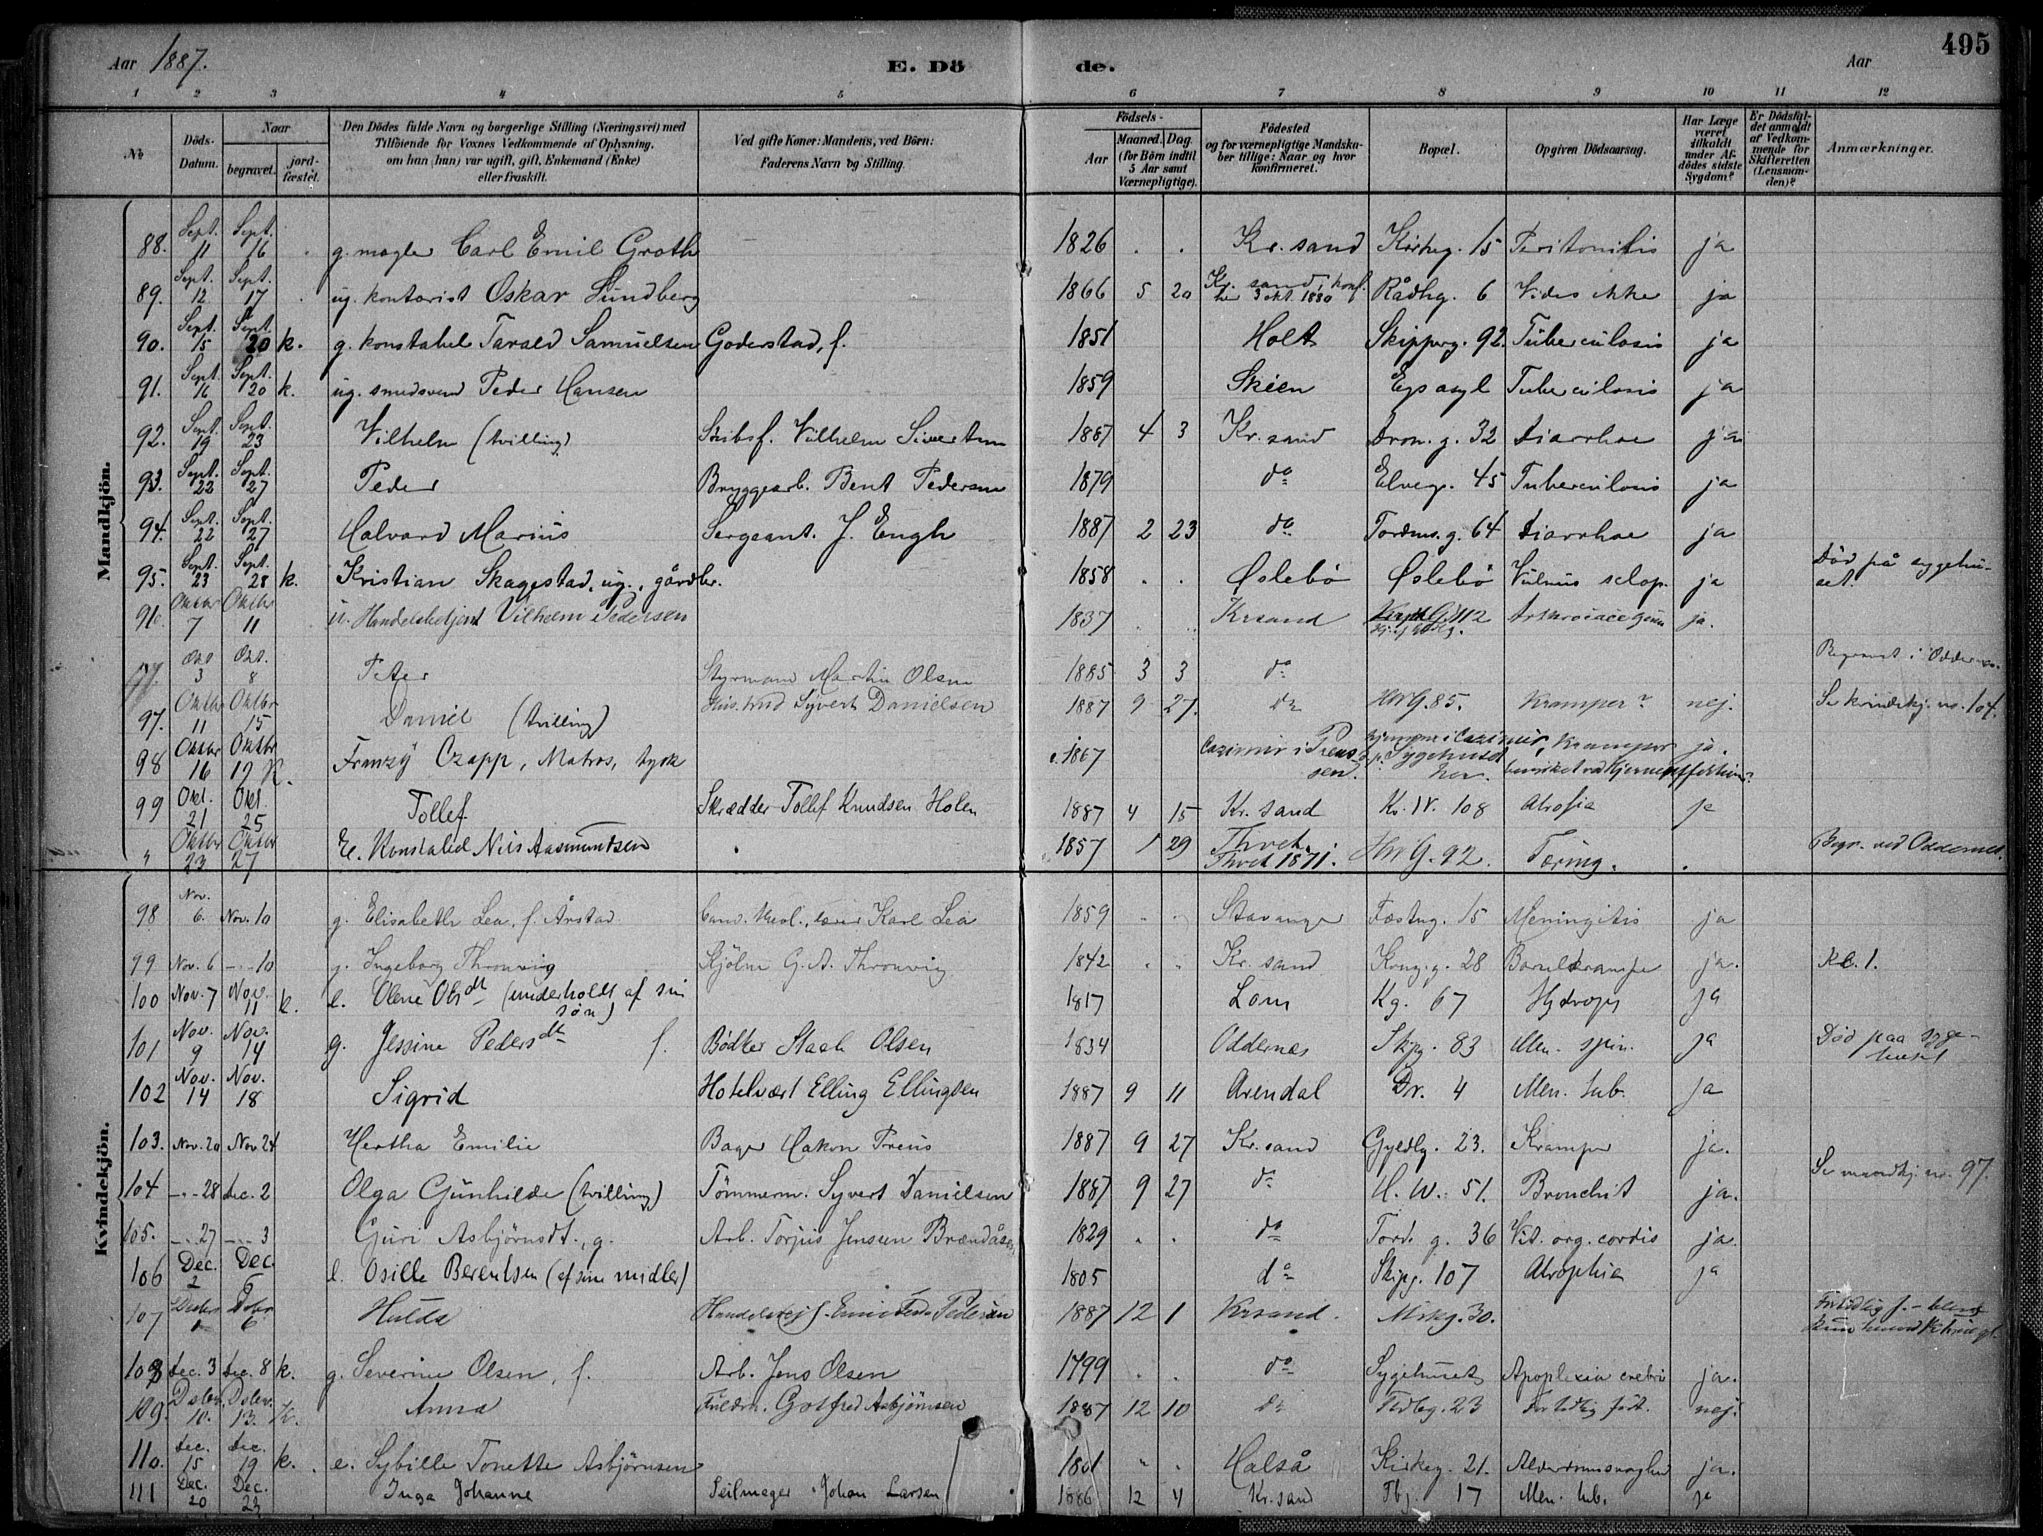 Aar 1887. E. Dö de. Aar 495
1 2 3 4 5 6 7 8 9 10 11 12
No Döds-Datum. Naar begravet. jord-fæstet. Den Dödes fulde Navn og borgerlige Stilling (Næringsvei) med Tilföiende for Voxnes Vedkommende af Oplysning, om han (hun) var ugift, gift, Enkemand (Enke) eller fraskilt. Ved gifte Koner: Mandens, ved Börn: Faderens Navn og Stilling. Födsels- Aar Maaned. Dag. (for Börn indtil 5 Aar samt Værnepligtige). Födested og for værnepligtige Mandskaber tillige: Naar og hvor konfirmeret. Bopæl. Opgiven Dödsaarsag. Har Læge været tilkaldt under Afdödes sidste Sygdom? Er Dödsfaldet anmeldt af Vedkommende for Skifteretten (Lensmanden)? Anmærkninger.
Mandkjön.
88. Sept. 11 Sept. 16 g. mægler Carl Emil Groth 1826 . . Kr. sand Kirkeg. 15 Peritonitis ja
89. Sept. 12 Sept. 17 ug. kontorist Oskar Sundberg 1866 5 20 Kr. sand, konf. her 3 okt. 1880 Rådhg. 6 Vides ikke ja
90. Sept. 15 Sept. 20 k. g. konstabel Tarald Samuelsen Goderstad, f. 1851 Holt Skipperg. 92. Tuberculosis ja
91. Sept. 16 Sept. 20 k. ug. smedsvend Peder Hansen 1859 Skien Egs asyl Tuberculosis ja
92. Sept. 19 Sept. 23 Vilhelm (tvilling) Skibsf. Vilhelm Sivertsen 1887 4 3 Kr. sand Dron. g. 32 Diarrhoe ja
93. Sept. 22 Sept. 27 Peder Bryggearb. Bent Pedersen 1879 do Elveg. 45 Tuberculosis ja
94. Sept. 22 Sept. 27 Halvard Marius Sergeant. J. Engh 1887 2 23 do Tordens. g. 64 Diarrhoe ja
95. Sept. 23 Sept. 28 k. Kristian Skagestad, ug., gårdbr. 1858 . . Øslebö Øslebö Vulnus sclop. ja Död på sygehuset.
96. Oktbr 7 Oktbr 11 u. Handelsbetjent Vilhelm Pedersen 1837 Krsand 112 ja.
Okt 3 Okt. 8 Peter Styrmand Martin Olsen 1885 3 3 do Begravet i Oddernes.
97. Oktbr 11 Oktbr 15 Daniel (tvilling) Syvert Danielsen 1887 9 27. do HWG. 85. Kramper? nej. Se kvindekj. no. 104.
98 Oktbr 16 Oktbr 19 K. Franzy Czapp, Matros, tysk c. 1867 Cazimir i Preussen. Sygehuset her. Kramper ja.
99 Okt. 21 Okt. 25 Tollef Skrædder Tollef Knudsen Holen 1887 4 15 Kr. sand K. W. 108 Atrofia ja
" Oktbr 23 Oktbr 27 E. Konstabel Nils Aasmundsen 1857 1 29 Thvet. Thvet 1871. HWG. 92. Tæring. . Begr. ved Oddernes.
Kvindekjön.
98. Nov. 6. Nov. 10 g. Elisabeth Lea, f. Årstad Cand. theol., lærer Karl Lea 1859 Stavanger Fæstng. 15 Meningitis ja
99 Nov. 6 -"- 10 g. Ingeborg Thronvig G. A. Thronvig 1842 Kr. sand Kong. g. 28 Barselkrampe ja. Kl. 1.
100 Nov. 7 Nov. 11 k. e. Olene Olsdt (underholdt af sin sön) 1817 Lom Kg. 67 Hydrops ja
101 Nov. 9 Nov. 14 g. Jessine Pedersdt f. Bödker Stach Olsen 1834 Oddernes Skipg. 83 Men. spin. ja Död paa sygehuset
102 Nov. 14 Nov. 18 Sigrid Hotelvært Elling Ellingsen 1887 9 11 Arendal Dr. 4 Men. tub. ja
103. Nov. 20 Nov. 24 Hertha Emilie Bager Hakon Preus 1887 9 27 Kr. sand Gyldlg. 23. Kramper ja.
104 -"- 28 Dec. 2 Olga Gunhilde (tvilling) Tömmerm. Syvert Danielsen 1887 9 27 do H. W. 51. Bronchit ja. Se mandkj. no. 97.
105. -"- 27 -"- 3 Guri Asbjörnsdt., g. Arb. Torjus Jensen Brændåsen 1829 do Tord. g. 36 Vit. org. cordis ja.
106 Dec. 2 Dec. 6 e. Osille Berentsen (af sine midler) 1805 do Skipg. 107 Atrophia ja
107 Hulda Pedersen 1887 12 1 Krsand. 30.
108 Dec. 3 Dec. 8 k. g. Severine Olsen, f. Arb. Jens Olsen 1799 do Sygehuset Apoplexia cerebri ja.
109. 10. 13. K. Anna Gotfred Asbjörnsen 1887 12 10 do 23 For tidlig födt. nej.
110. Dec. 15 Dec. 19 k. e. Sybille Tonette Asbjörnsen 1801 Halså Kirkeg. 21. Alderdomssvaghed ja.
111 Dec. 20 Dec. 23 Inga Johanne Seilmager Johan Larsen 1886 12 4 Kr. sand Tbg. 17 Men. tub. ja